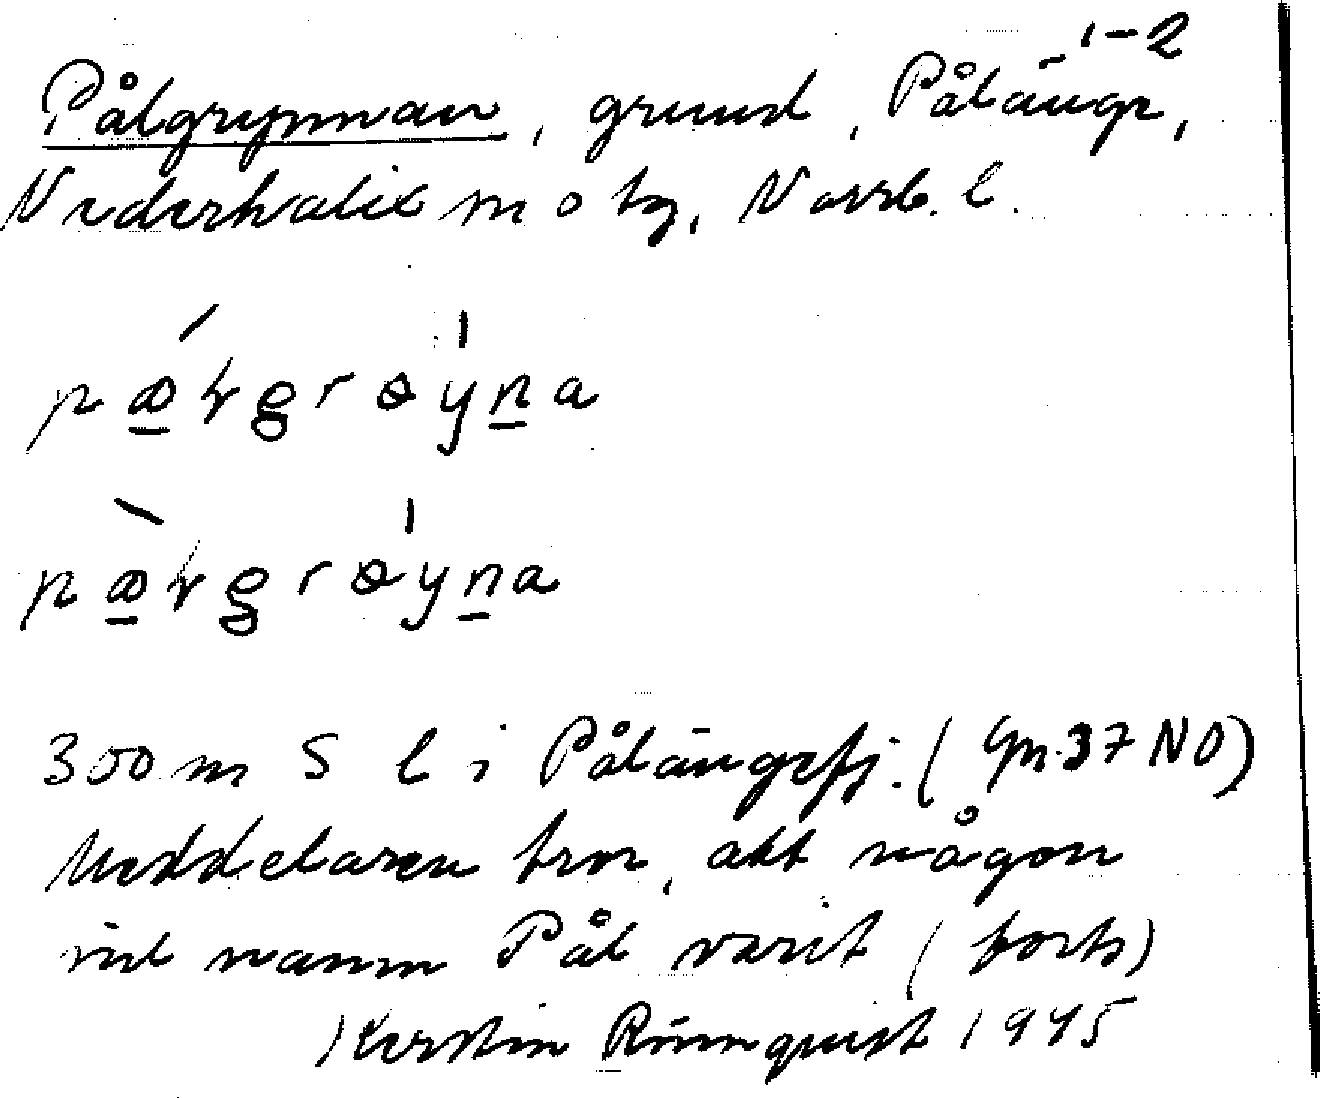 1-2
Pålgrynnan, grund, Pålänge,
Nederkalix m o tg, Norrb. l.
300 m S l i Pålängefj. (Gpn. 37 NO)
Meddelaren tror, att någon
vid namn Pål varit (forts)
Kerstin Rönnquist 1945